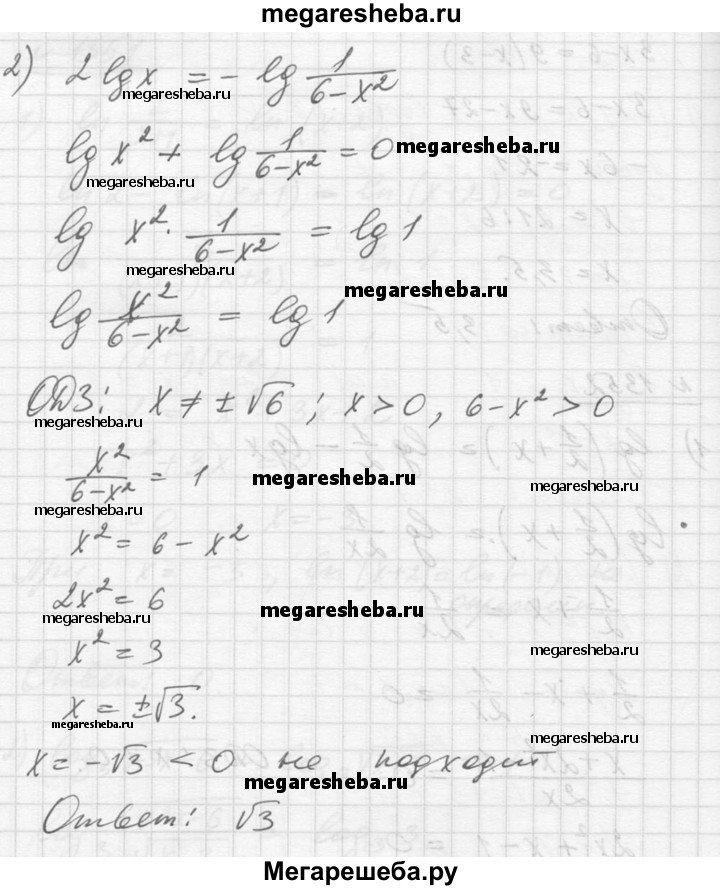 megaresheba.ru
2) 2 lg x = - lg 1/(6-x²)
megaresheba.ru
lg x² + lg 1/(6-x²) = 0 megaresheba.ru
megaresheba.ru
lg x² · 1/(6-x²) = lg 1
megaresheba.ru
megaresheba.ru
lg x²/(6-x²) = lg 1
ОДЗ: x ≠ ±√6 ; x > 0, 6-x² > 0
megaresheba.ru
x²/(6-x²) = 1 megaresheba.ru
megaresheba.ru
megaresheba.ru
x² = 6 - x²
2x² = 6 megaresheba.ru
megaresheba.ru
x² = 3 megaresheba.ru
x = ±√3.
megaresheba.ru
megaresheba.ru
x = -√3 < 0 не подходит
megaresheba.ru
Ответ: √3
Мегарешеба.ру